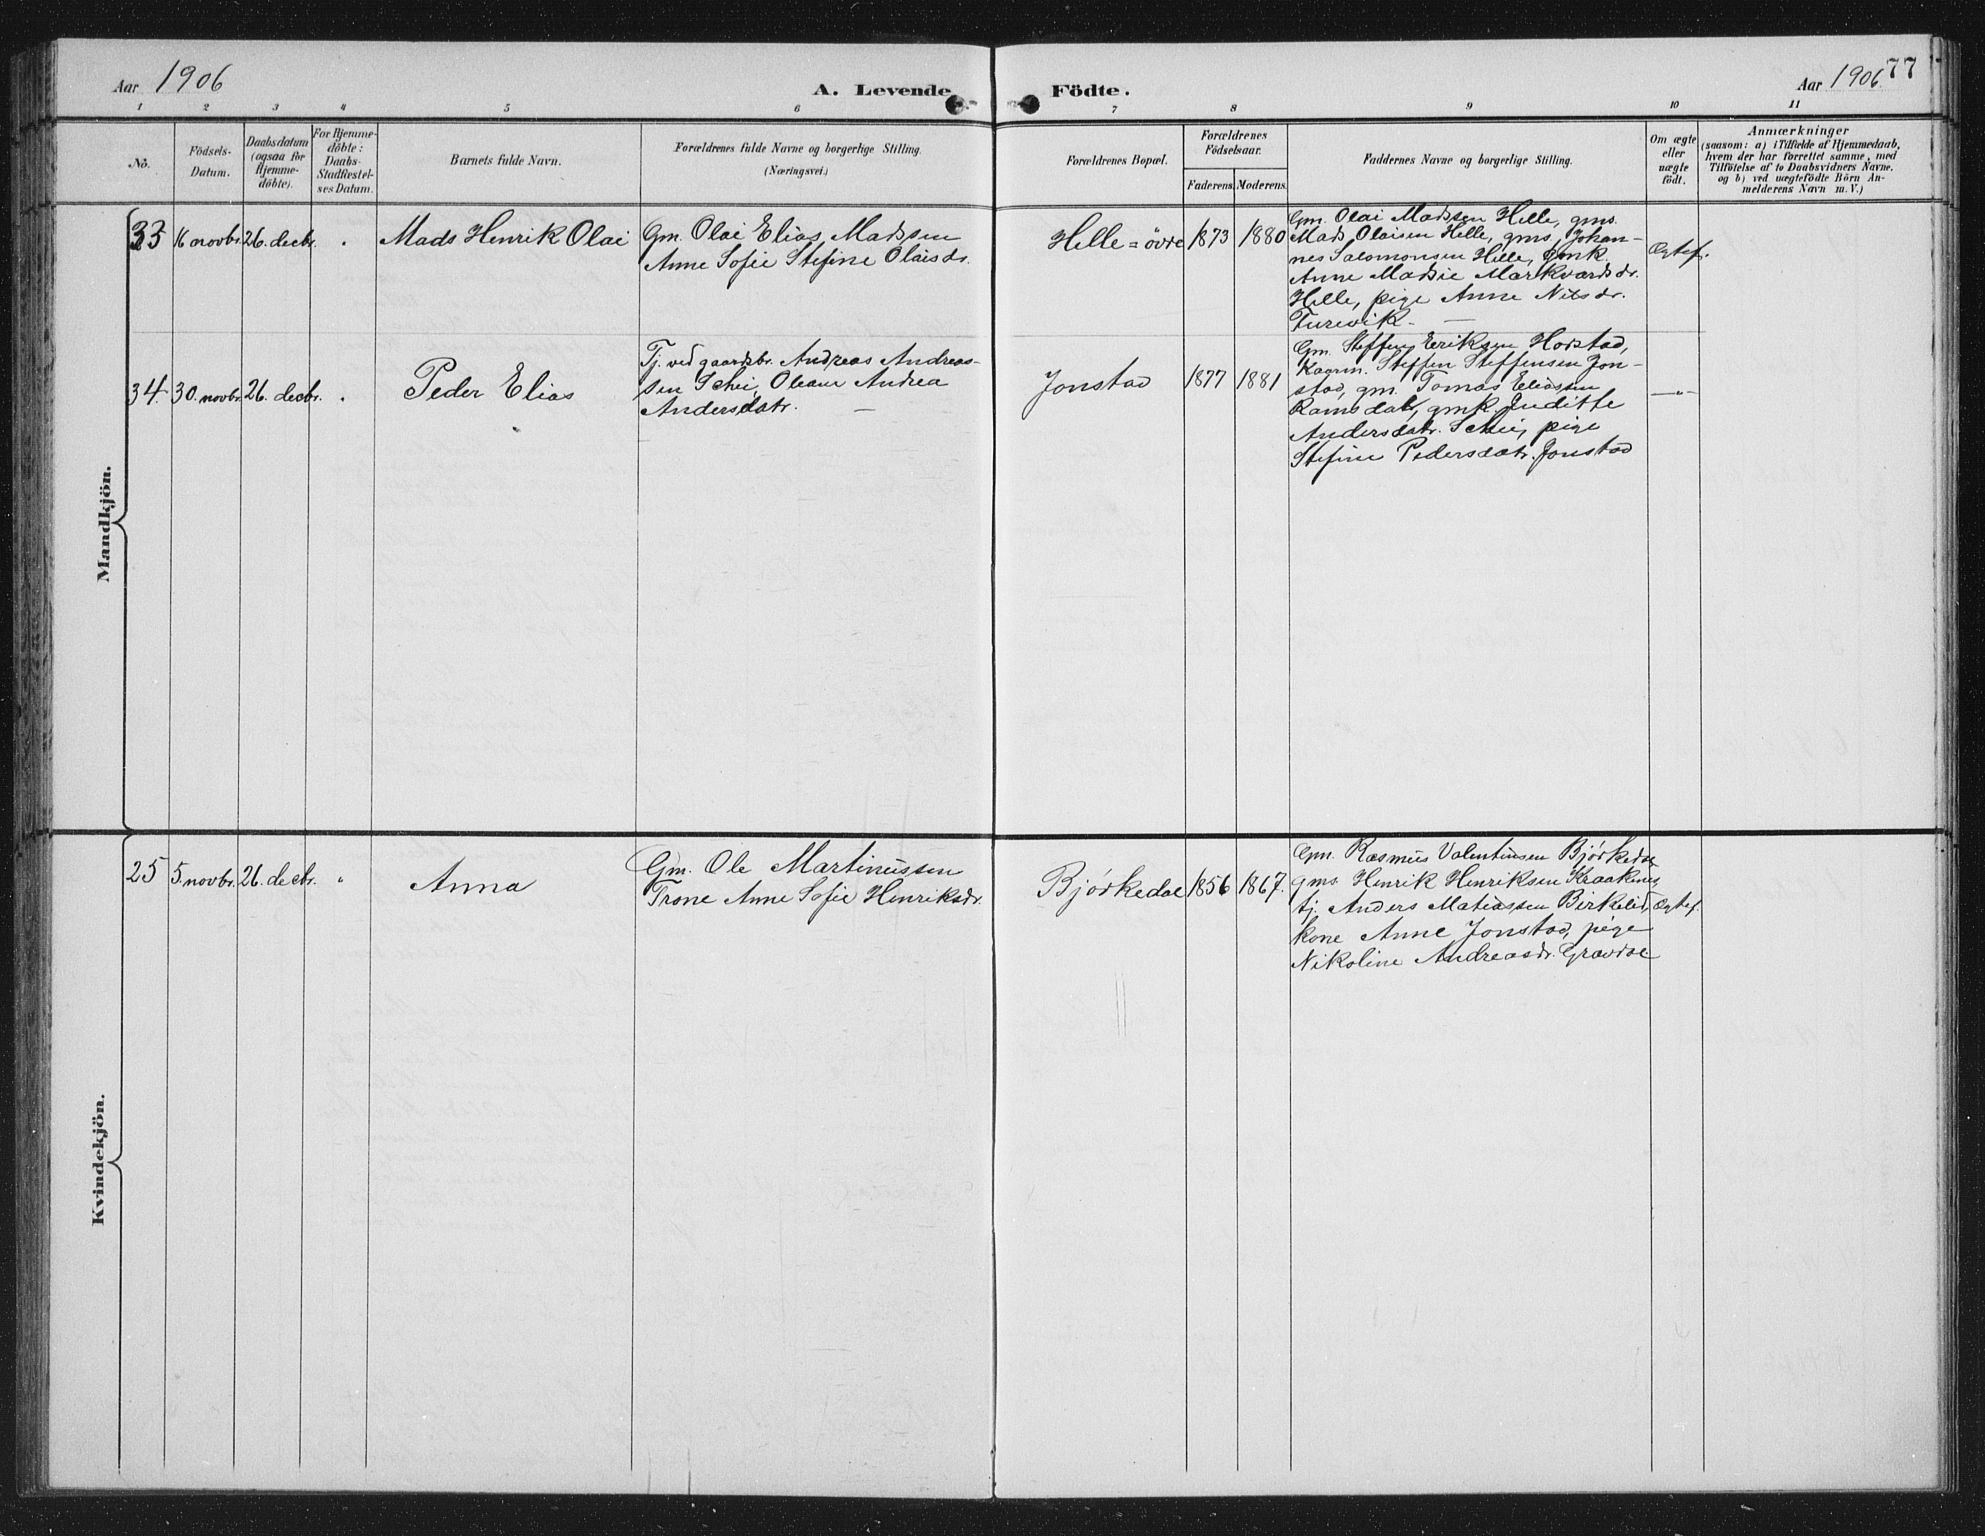 Aar 1906
A. Levende
Födte.
Aar 1906.
77
1 2 3 4 5 6 7 8 9 10 11
No.
Födsels-
Datum.
Daabsdatum
(ogsaa for
Hjemme-
döbte).
For Hjemme-
döbte:
Daabs-
Stadfæstel-
ses Datum.
Barnets fulde Navn.
Forældrenes fulde Navne og borgerlige Stilling.
(Næringsvei.)
Forældrenes Bopæl.
Forældrenes
Födselsaar.
Faderens. Moderens.
Faddernes Navne og borgerlige Stilling.
Om ægte
eller
uægte
födt.
Anmærkninger
(saasom: a) i Tilfælde af Hjemmedaab,
hvem der har forrettet samme, med
Tilföielse af to Daabsvidners Navne.
og b) ved uægtefödte Börn An-
melderens Navn m. V.)
Mandkjön.
33 16 novbr. 26. decbr. " Mads Henrik Olai
Gm. Olai Elias Madsen
Anne Sofie Stefine Olaisdr.
Helle = övre 1873 1880
Gm. Olai Madsen Helle, gms.
Mads Olaisen Helle, gms. Johan-
nes Salomonsen Helle, gmk.
Anne Madsie Markvardsdr.
Helle, pige Anne Nilsdr.
Turevik. —
Ægtef.
34. 30. novbr. 26. decbr. " Peder Elias
Tj. ved gaardsbr. Andreas Andreas-
sen Schei, Oleane Andrea
Andersdatr. —
Jonstad 1877 1881
Gm. Steffen Eriksen Horstad,
Kaarm. Steffen Steffensen Jon-
stad, gm. Tomas Eliassen
Ramsdal, gmk. Juditte
Andersdatr. Schei, pige
Stefine Pedersdatr. Jonstad
—"—
Kvindekjön.
25 5. novbr. 26. decbr. " Anna
Gm. Ole Martinussen
Trone Anne Sofie Henriksdr.
Bjørkedal 1856 1867.
Gm. Rasmus Valentinsen Bjørkedal
gms. Henrik Henriksen Kraakenes,
tj. Anders Matiassen Birkelid,
kone Anne Jonstad, pige
Nikoline Andreasdr. Gravdal
Ægtef.